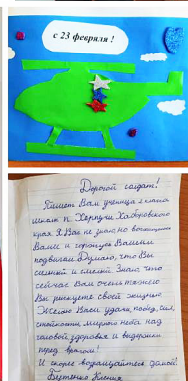 с 23 февраля!
Дорогой солдат!
Пишет Вам ученица 2 класса
школы п. Херпучи Хабаровского
края. Я Вас не знаю, но восхищаюсь
Вами и горжусь Вашими
подвигами. Думаю, что Вы
сильный и смелый. Знаю, что
сейчас Вам очень тяжело
Вы рискуете своей жизнью
Желаю Вам удачи, побед, сил,
стойкости, мирного неба над
головой, здоровья и выдержки
перед врагом!
И скорее возвращайтесь домой!
Ксения